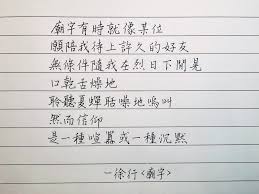 廟宇有時就像某位
願陪我待上許久的好友
無條件隨我在烈日下閒晃
口乾舌燥地
聆聽夏蟬聒噪地鳴叫
然而信仰
是一種喧囂或一種沉默
—徐行<廟宇>